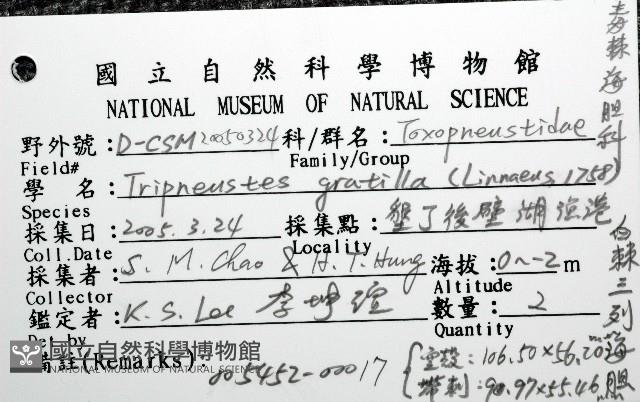 國立自然科學博物館
NATIONAL MUSEUM OF NATURAL SCIENCE
野外號:D-CSM20050324 科/群名:Toxopneustidae
Field# Family/Group
學 名:Tripneustes gratilla (Linnaeus, 1758)
Species
採集日:2005.3.24 採集點:墾丁後壁湖漁港
Coll.Date Locality
採集者:S. M. Chao & H. T. Hung 海拔:0~-2m
Collector Altitude
鑑定者:K. S. Lee 李坤瑄 數量:2
Det by Quantity
備註(Remarks)
005452-00017
空殼:106.50×56.20
帶刺:90.97×55.46
毒棘海胆科
白棘三列海胆
國立自然科學博物館
NATIONAL MUSEUM OF NATURAL SCIENCE